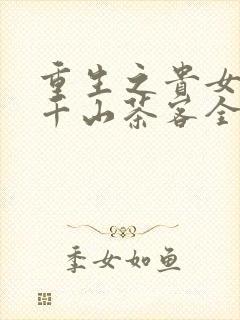 重生之貴女
千山茶客全
季女如鱼